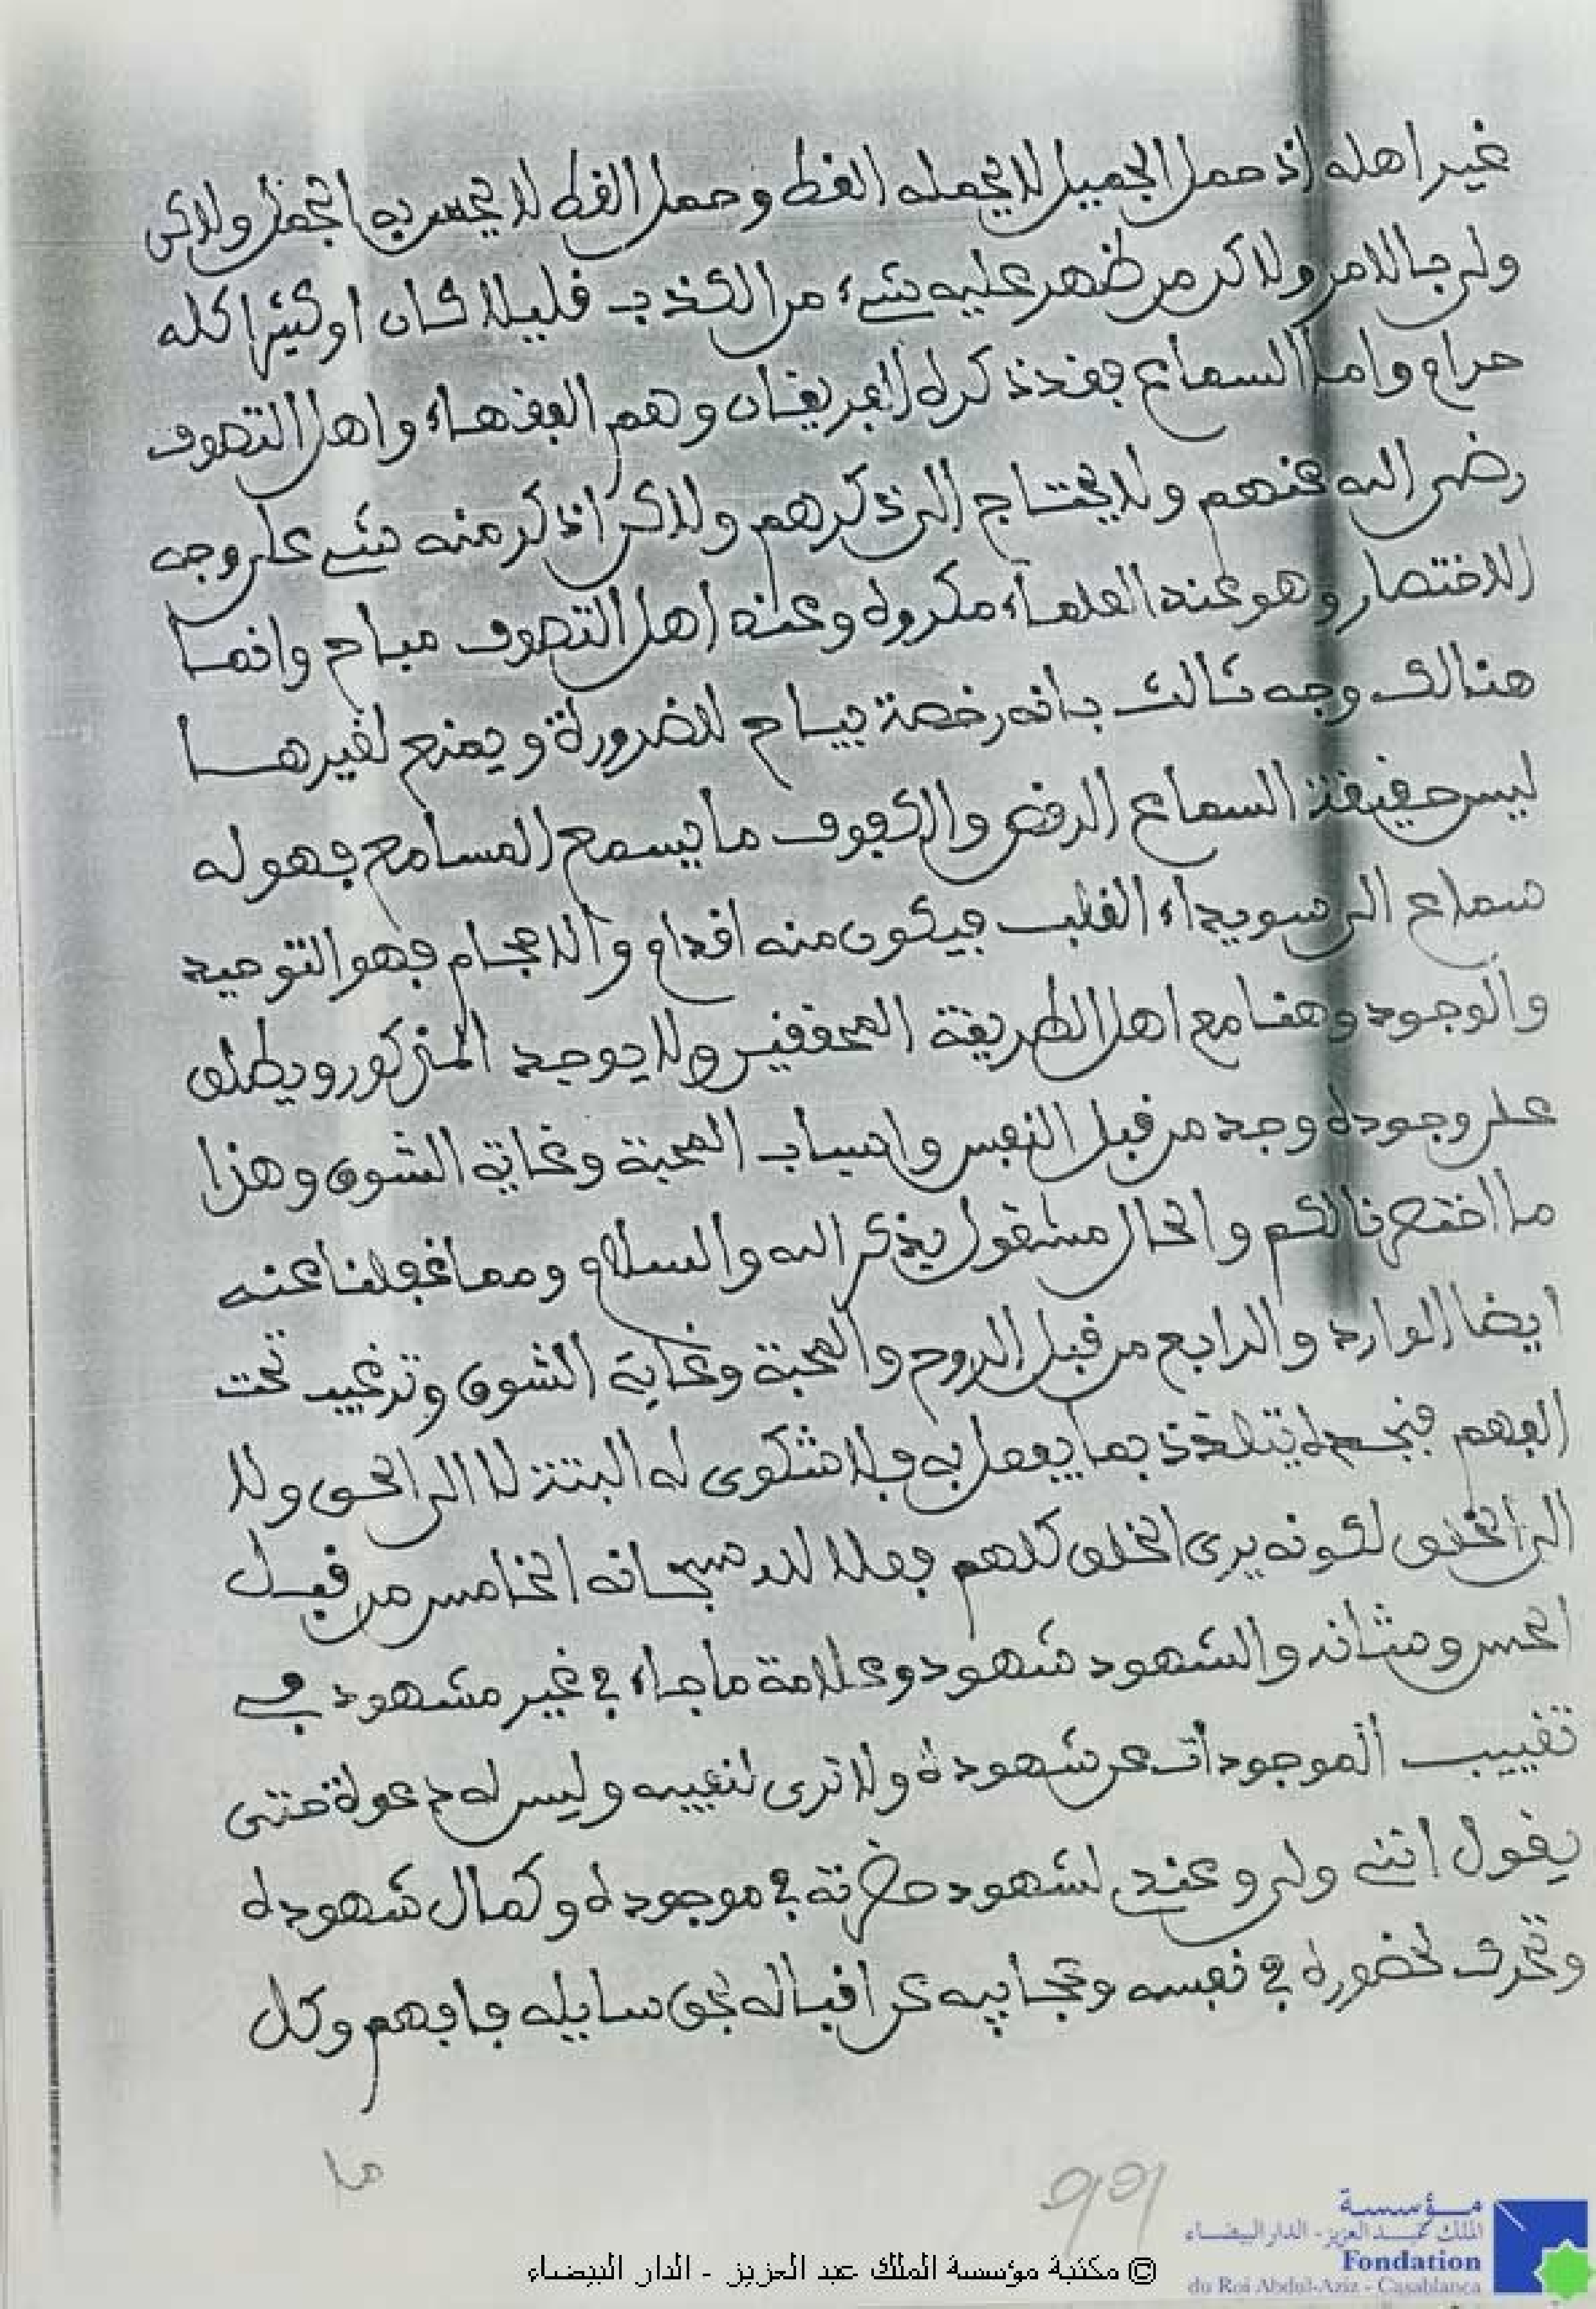 غير اهله اذ حمل الجميل لا يحمله الفظ وحمل الفظ لا يحس به الجمل ولاكن
ولى جا الامر ولاكن من ظهر عليه شيء من الكذب قليلا كان او كثيرا كله
حرام واما السماع فقد ذكره الفريقان وهم الفقهاء واهل التصوف
رضى الله عنهم ولا يحتاج الى ذكرهم ولاكن اذكر منه شيء على وجه
الاختصار وهو عند العلماء مكروه وعند اهل التصوف مباح وانما
هنالك وجه ثالث بانه رخصة يباح للضرورة ويمنع لغيرها
ليس حقيقة السماع الرقص والكفوف ما يسمع المسامع فهو له
سماع الى سويداء القلب فيكون منه اقدام والاحجام فهو التوحيد
والوجود وهنا مع اهل الطريقة المحققين ولا يوجد المذكور ويطلق
على وجوده وجد من قبل النفس واسباب المحبة وغاية الشوق وهذا
ما اختصرنا لكم والحال مشغول بذكر الله والسلام ومما غفلنا عنه
ايضا الوارد والرابع من قبل الروح والمحبة وغاية الشوق وترغيب تحت
الفهم فنجده يتلذذ بما يفعل به فلا شكوى له البتة لا الى الحق ولا
الى الخلق لكونه يرى الخلق كلهم فعلا لله سبحانه الخامس من قبل
الحس وشانه والشهود شهود وعلامة ما جاء في غير مشهود في
تغييب الموجودات عن شهوده ولا ترى لنفيه وليس له دعوة حتى
يقول انني ولى وعندي لشهود حضرته في موجوده وكمال شهوده
وتحرك لحضوره في نفسه وتجانيه عن اقباله لحق سايله فافهم وكل
ما
199
© مكتبة مؤسسة الملك عبد العزيز - الدار البيضاء
مؤسسة
الملك عبد العزيز - الدار البيضاء
Fondation
du Roi Abdul-Aziz - Casablanca